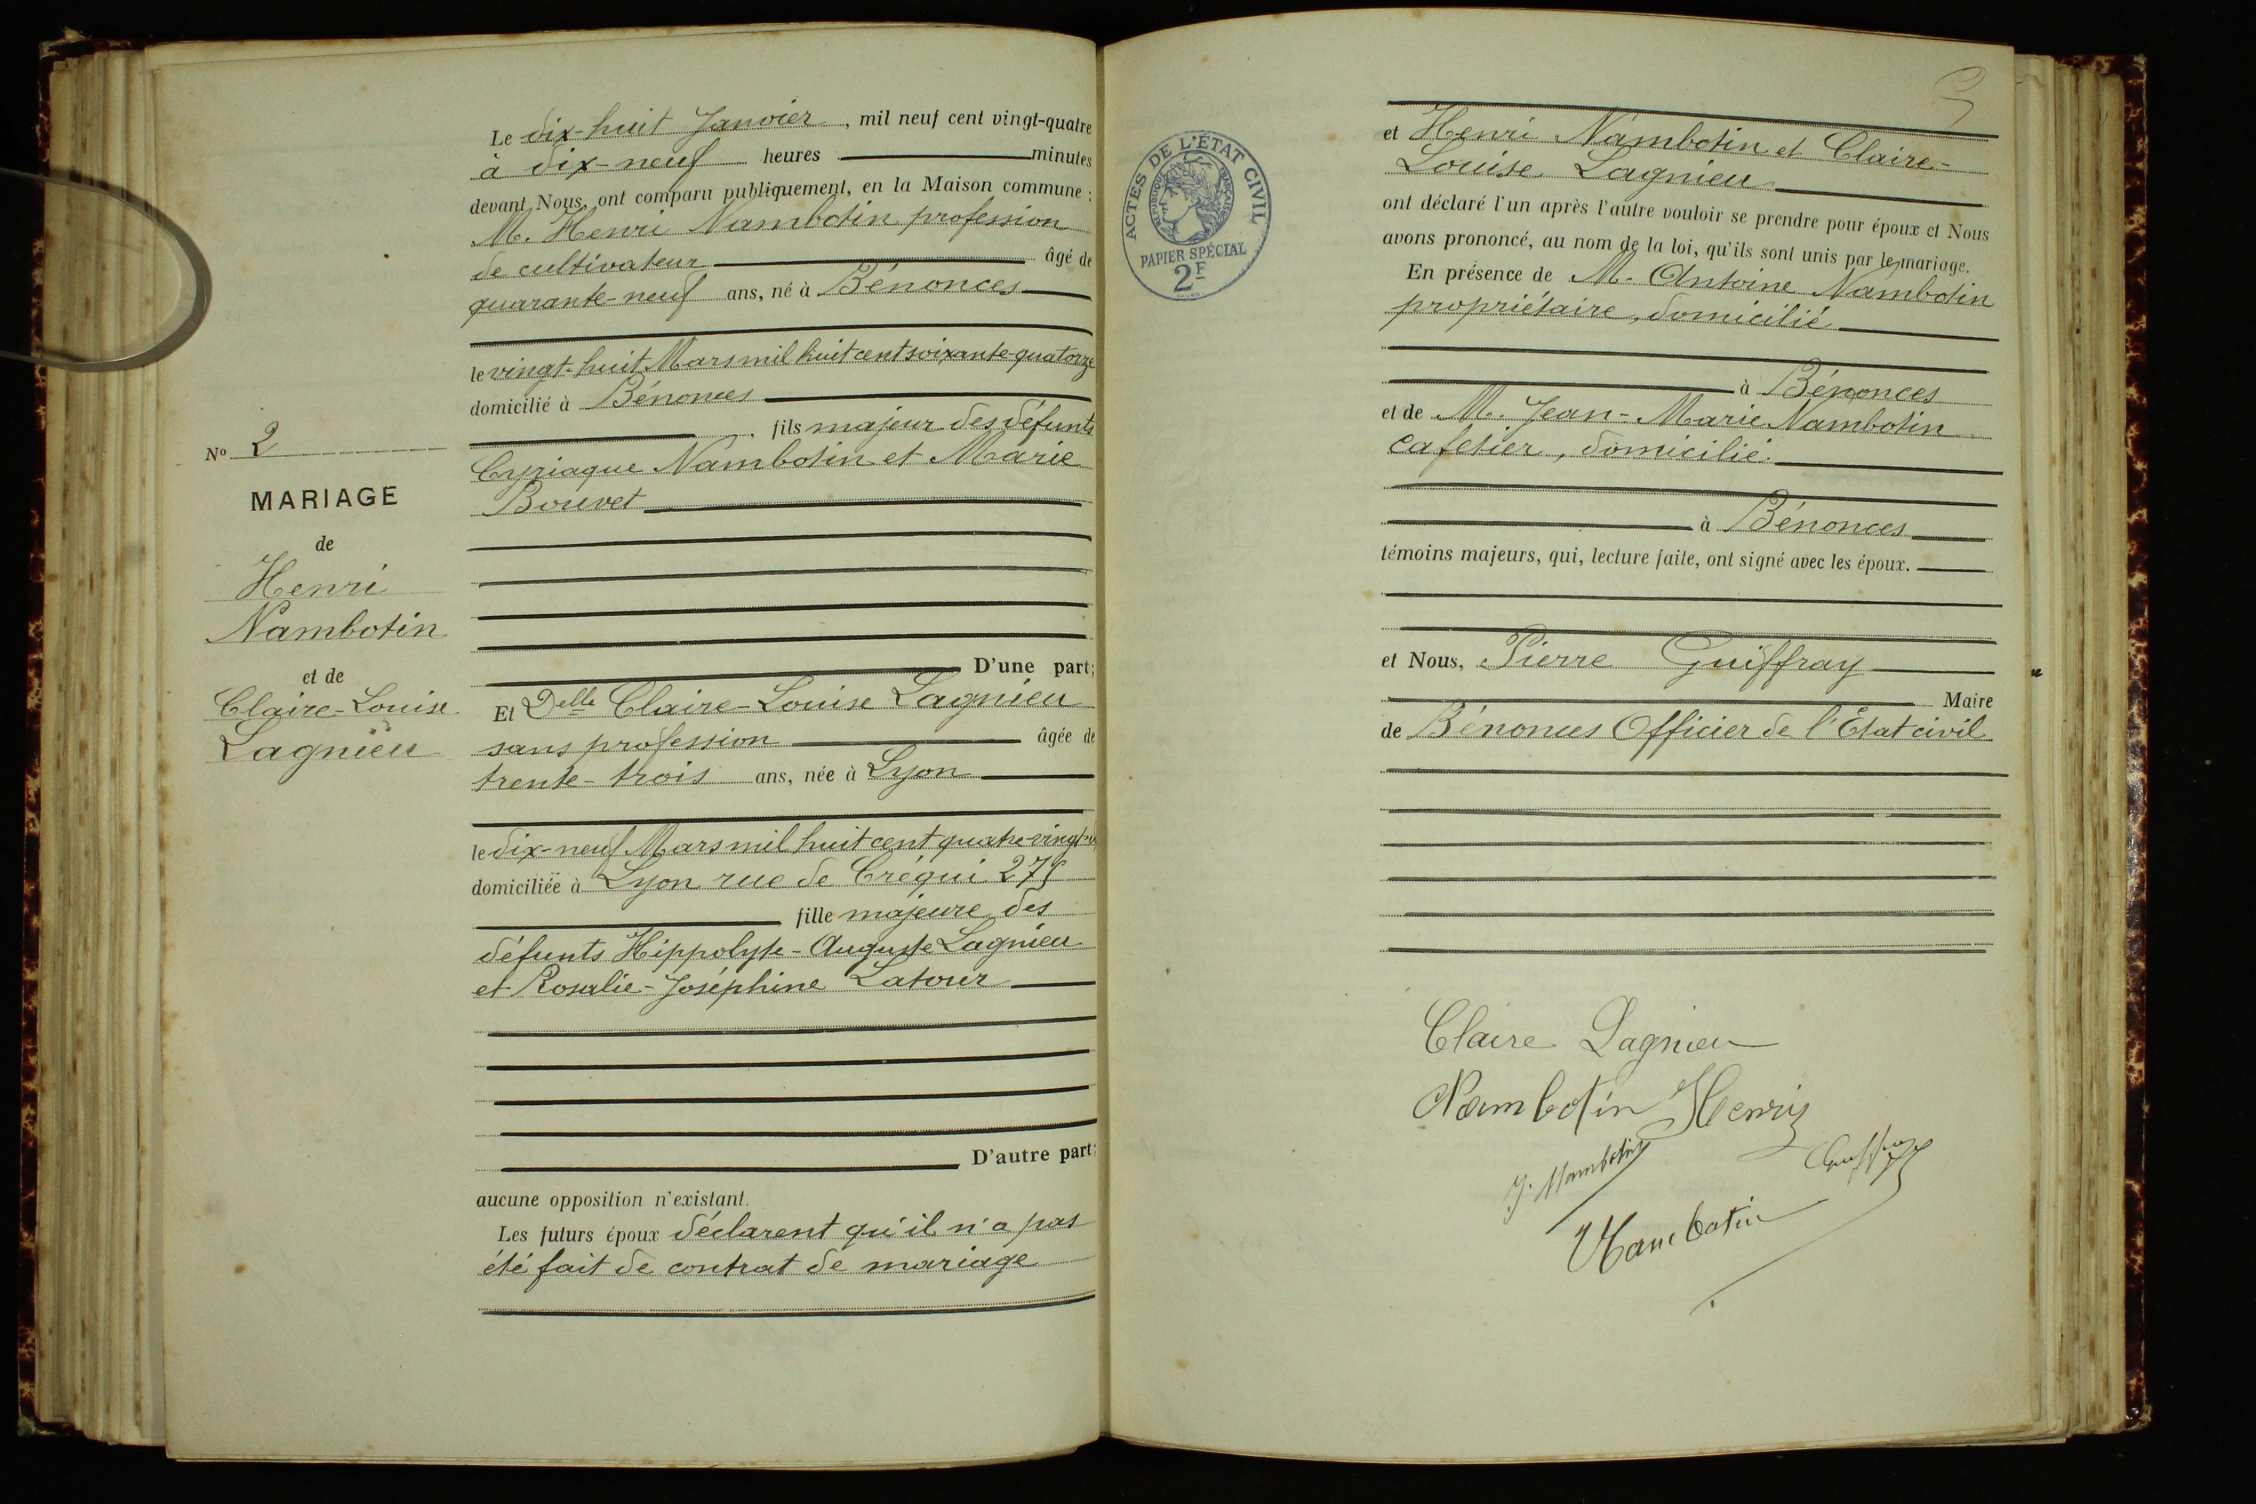 Le dix-huit Janvier, mil neuf cent vingt-quatre
à dix-neuf heures minutes
devant Nous, ont comparu publiquement, en la Maison commune :
M. Henri Nambotin profession
de cultivateur âgé de
quarante-neuf ans, né à Bénonces
le vingt-huit Mars mil huit cent soixante-quatorze
domicilié à Bénonces
fils majeur des défunts
Cyriaque Nambotin et Marie
Bouvet
D'une part;
Et Delle Claire-Louise Lagnieu
sans profession âgée de
trente-trois ans, née à Lyon
le dix-neuf Mars mil huit cent quatre-vingt-
domiciliée à Lyon rue de Créqui
fille majeure des
défunts Hippolyte-Auguste Lagnieu
et Rosalie-Joséphine Latour
D'autre part;
aucune opposition n'existant.
Les futurs époux déclarent qu'il n'a pas
été fait de contrat de mariage
No 2
MARIAGE
de
Henri
Nambotin
et de
Claire-Louise
Lagnieu
ACTES DE L'ÉTAT CIVIL
RÉPUBLIQUE FRANÇAISE
PAPIER SPÉCIAL
2F
et Henri Nambotin et Claire-
Louise Lagnieu
ont déclaré l'un après l'autre vouloir se prendre pour époux et Nous
avons prononcé, au nom de la loi, qu'ils sont unis par le mariage.
En présence de M. Antoine Nambotin
propriétaire, domicilié
à Bénonces
et de M. Jean-Marie Nambotin
cafetier, domicilié
à Bénonces
témoins majeurs, qui, lecture faite, ont signé avec les époux.
et Nous, Pierre Guiffray
Maire
de Bénonces Officier de l'État civil
Claire Lagnieu
Nambotin Henry
J. Nambotin
Guiffray
Nambotin